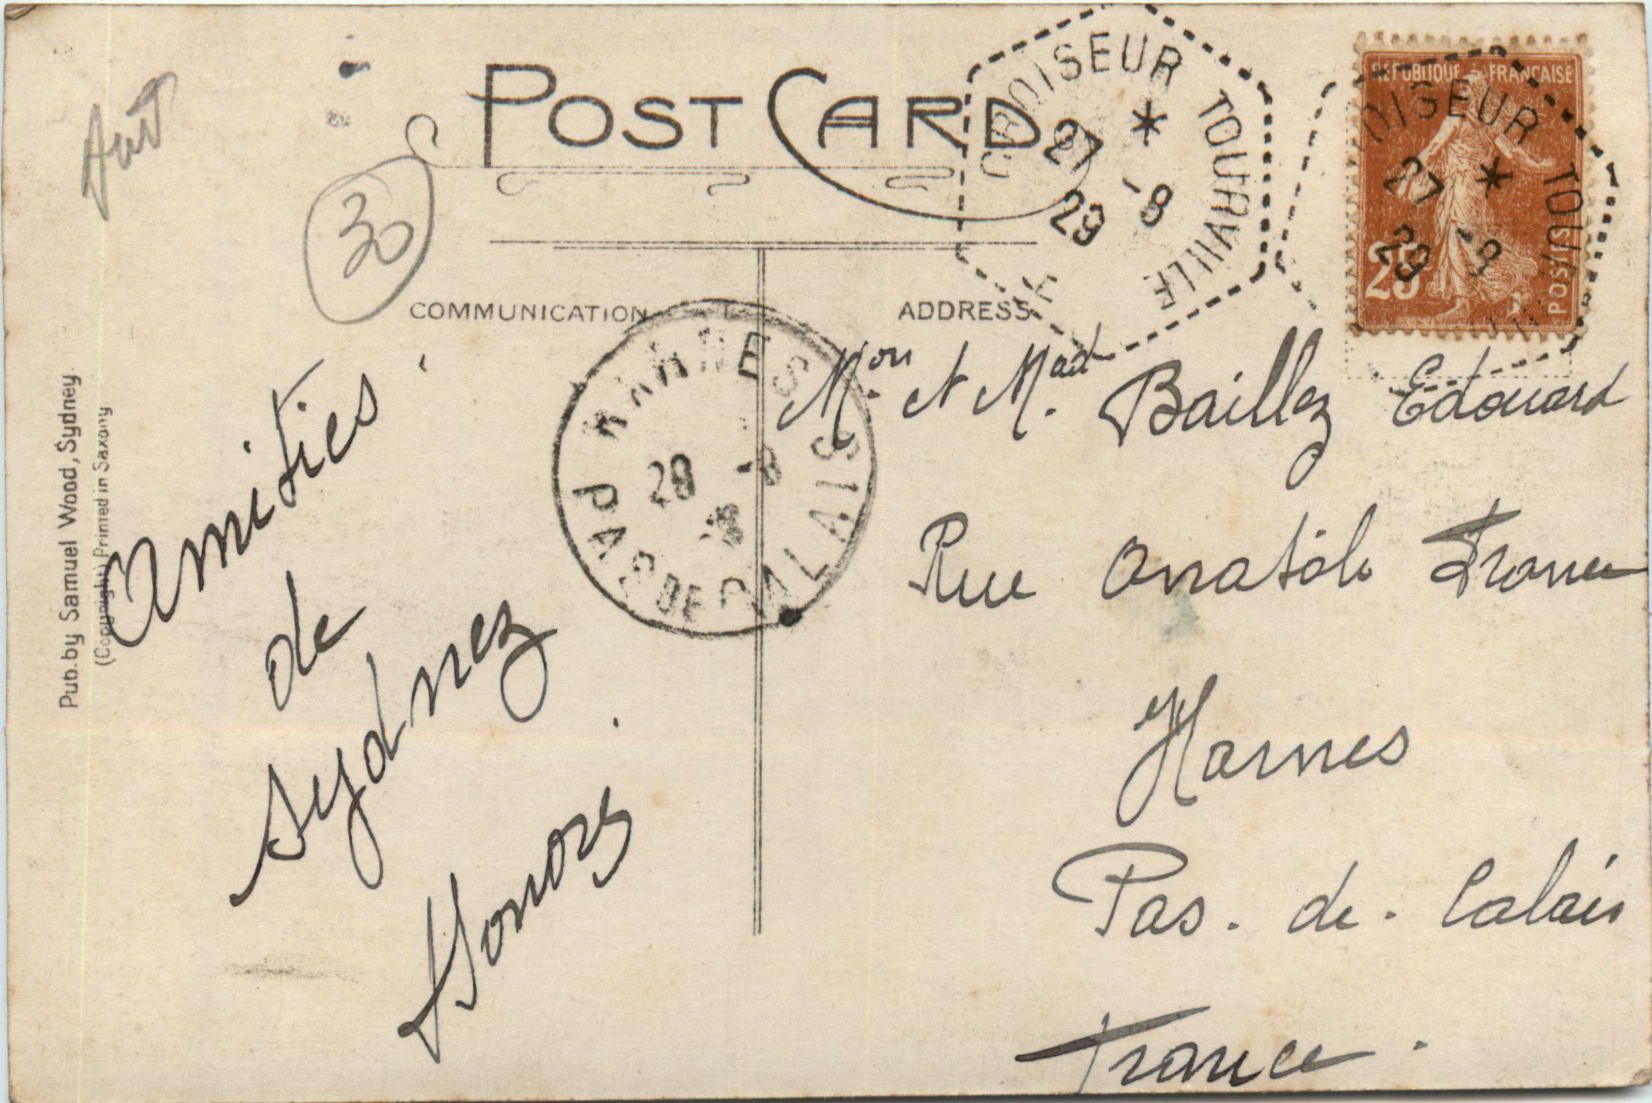 Aut
30
POST CARD
COMMUNICATION
ADDRESS
CROISEUR TOURVILLE
27 -8
29
REPUBLIQUE FRANCAISE
25
POSTES
OISEUR TOU
27 -8
29
HARNES
28 -8
PAS DE CALAIS
Pub. by Samuel Wood, Sydney.
(Copyright) Printed in Saxony
Amitiés
de
Sydney
Mon. et Mad. Baillez Edouard
Rue Anatole France
Harnes
Pas. de. Calais
France.